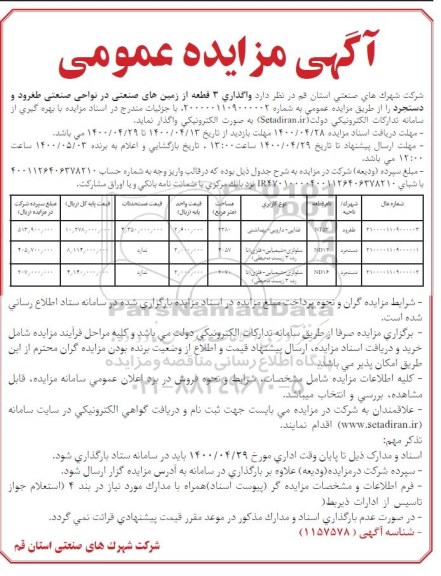 آگهی مزایده عمومی
شرکت شهرک های صنعتی استان قم در نظر دارد واگذاری ۳ قطعه از زمین های صنعتی در نواحی صنعتی طغرود و
دستجرد را از طریق مزایده عمومی به شماره ۲۰۰۰۰۰۱۱۰۹۰۰۰۰۰۲، با جزئیات مندرج در اسناد مزایده با بهره گیری از
سامانه تدارکات الکترونیکی دولت (Setadiran.ir) به صورت الکترونیکی واگذار نماید.
- مهلت دریافت اسناد مزایده ۱۴۰۰/۰۴/۲۸ مهلت بازدید از تاریخ ۱۴۰۰/۰۴/۱۳ تا تاریخ ۱۴۰۰/۰۴/۲۹ می باشد.
- مهلت ارسال پیشنهاد تا تاریخ ۱۴۰۰/۰۴/۲۹ ساعت ۱۳:۰۰ ، تاریخ بازگشایی و اعلام به برنده ۱۴۰۰/۰۵/۰۳ ساعت
۱۲:۰۰ می باشد.
- مبلغ سپرده (ودیعه) شرکت در مزایده به شرح جدول ذیل بوده که در قالب واریز وجه به شماره حساب ۴۰۰۱۱۲۶۴۰۶۳۷۸۲۱۰
با شبای نزد بانک مرکزی یا ضمانت نامه بانکی و یا اوراق مشارکت.
شماره مال شهرک/ناحیه نام قطعه نوع کاربری مساحت (متر مربع) قیمت واحد پایه (ریال) قیمت مستحدثات قیمت پایه کل (ریال) مبلغ سپرده شرکت در مزایده (ریال)
طغرود غذایی-دارویی-بهداشتی
دستجرد ND۱۲ ندارد
دستجرد ND۱۶ ندارد
- شرایط مزایده گران و نحوه پرداخت مبلغ مزایده در اسناد مزایده بارگزاری شده در سامانه ستاد اطلاع رسانی
شده است.
- برگزاری مزایده صرفا از طریق سامانه تدارکات الکترونیکی دولت می باشد و کلیه مراحل فرآیند مزایده شامل
خرید و دریافت اسناد مزایده، ارسال پیشنهاد قیمت و اطلاع از وضعیت برنده بودن مزایده گران محترم از این
طریق امکان پذیر می باشد.
- کلیه اطلاعات مزایده شامل مشخصات، شرایط و نحوه فروش در برد اعلان عمومی سامانه مزایده، قابل
مشاهده، بررسی و انتخاب میباشد.
- علاقمندان به شرکت در مزایده می بایست جهت ثبت نام و دریافت گواهی الکترونیکی در سایت سامانه
(www.setadiran.ir) اقدام نمایند.
تذکر مهم:
اسناد و مدارک ذیل تا پایان وقت اداری مورخ ۱۴۰۰/۰۴/۲۹ باید در سامانه ستاد بارگذاری شود.
- سپرده شرکت درمزایده(ودیعه) علاوه بر بارگذاری در سامانه به آدرس مزایده گزار ارسال شود.
- فرم اطلاعات و مشخصات مزایده گر (پیوست اسناد)همراه با مدارک مورد نیاز در بند ۴ (استعلام جواز
تاسیس از ادارات ذیربط)
- در صورت عدم بارگذاری اسناد و مدارک مذکور در موعد مقرر قیمت پیشنهادی قرائت نمی گردد.
- شناسه آگهی (۱۱۵۷۵۷۸)
شرکت شهرک های صنعتی استان قم
ParsNamadData
پایگاه اطلاع رسانی مناقصه و مزایده
۰۲۱-۸۸۳۴۹۶۷۰-۵